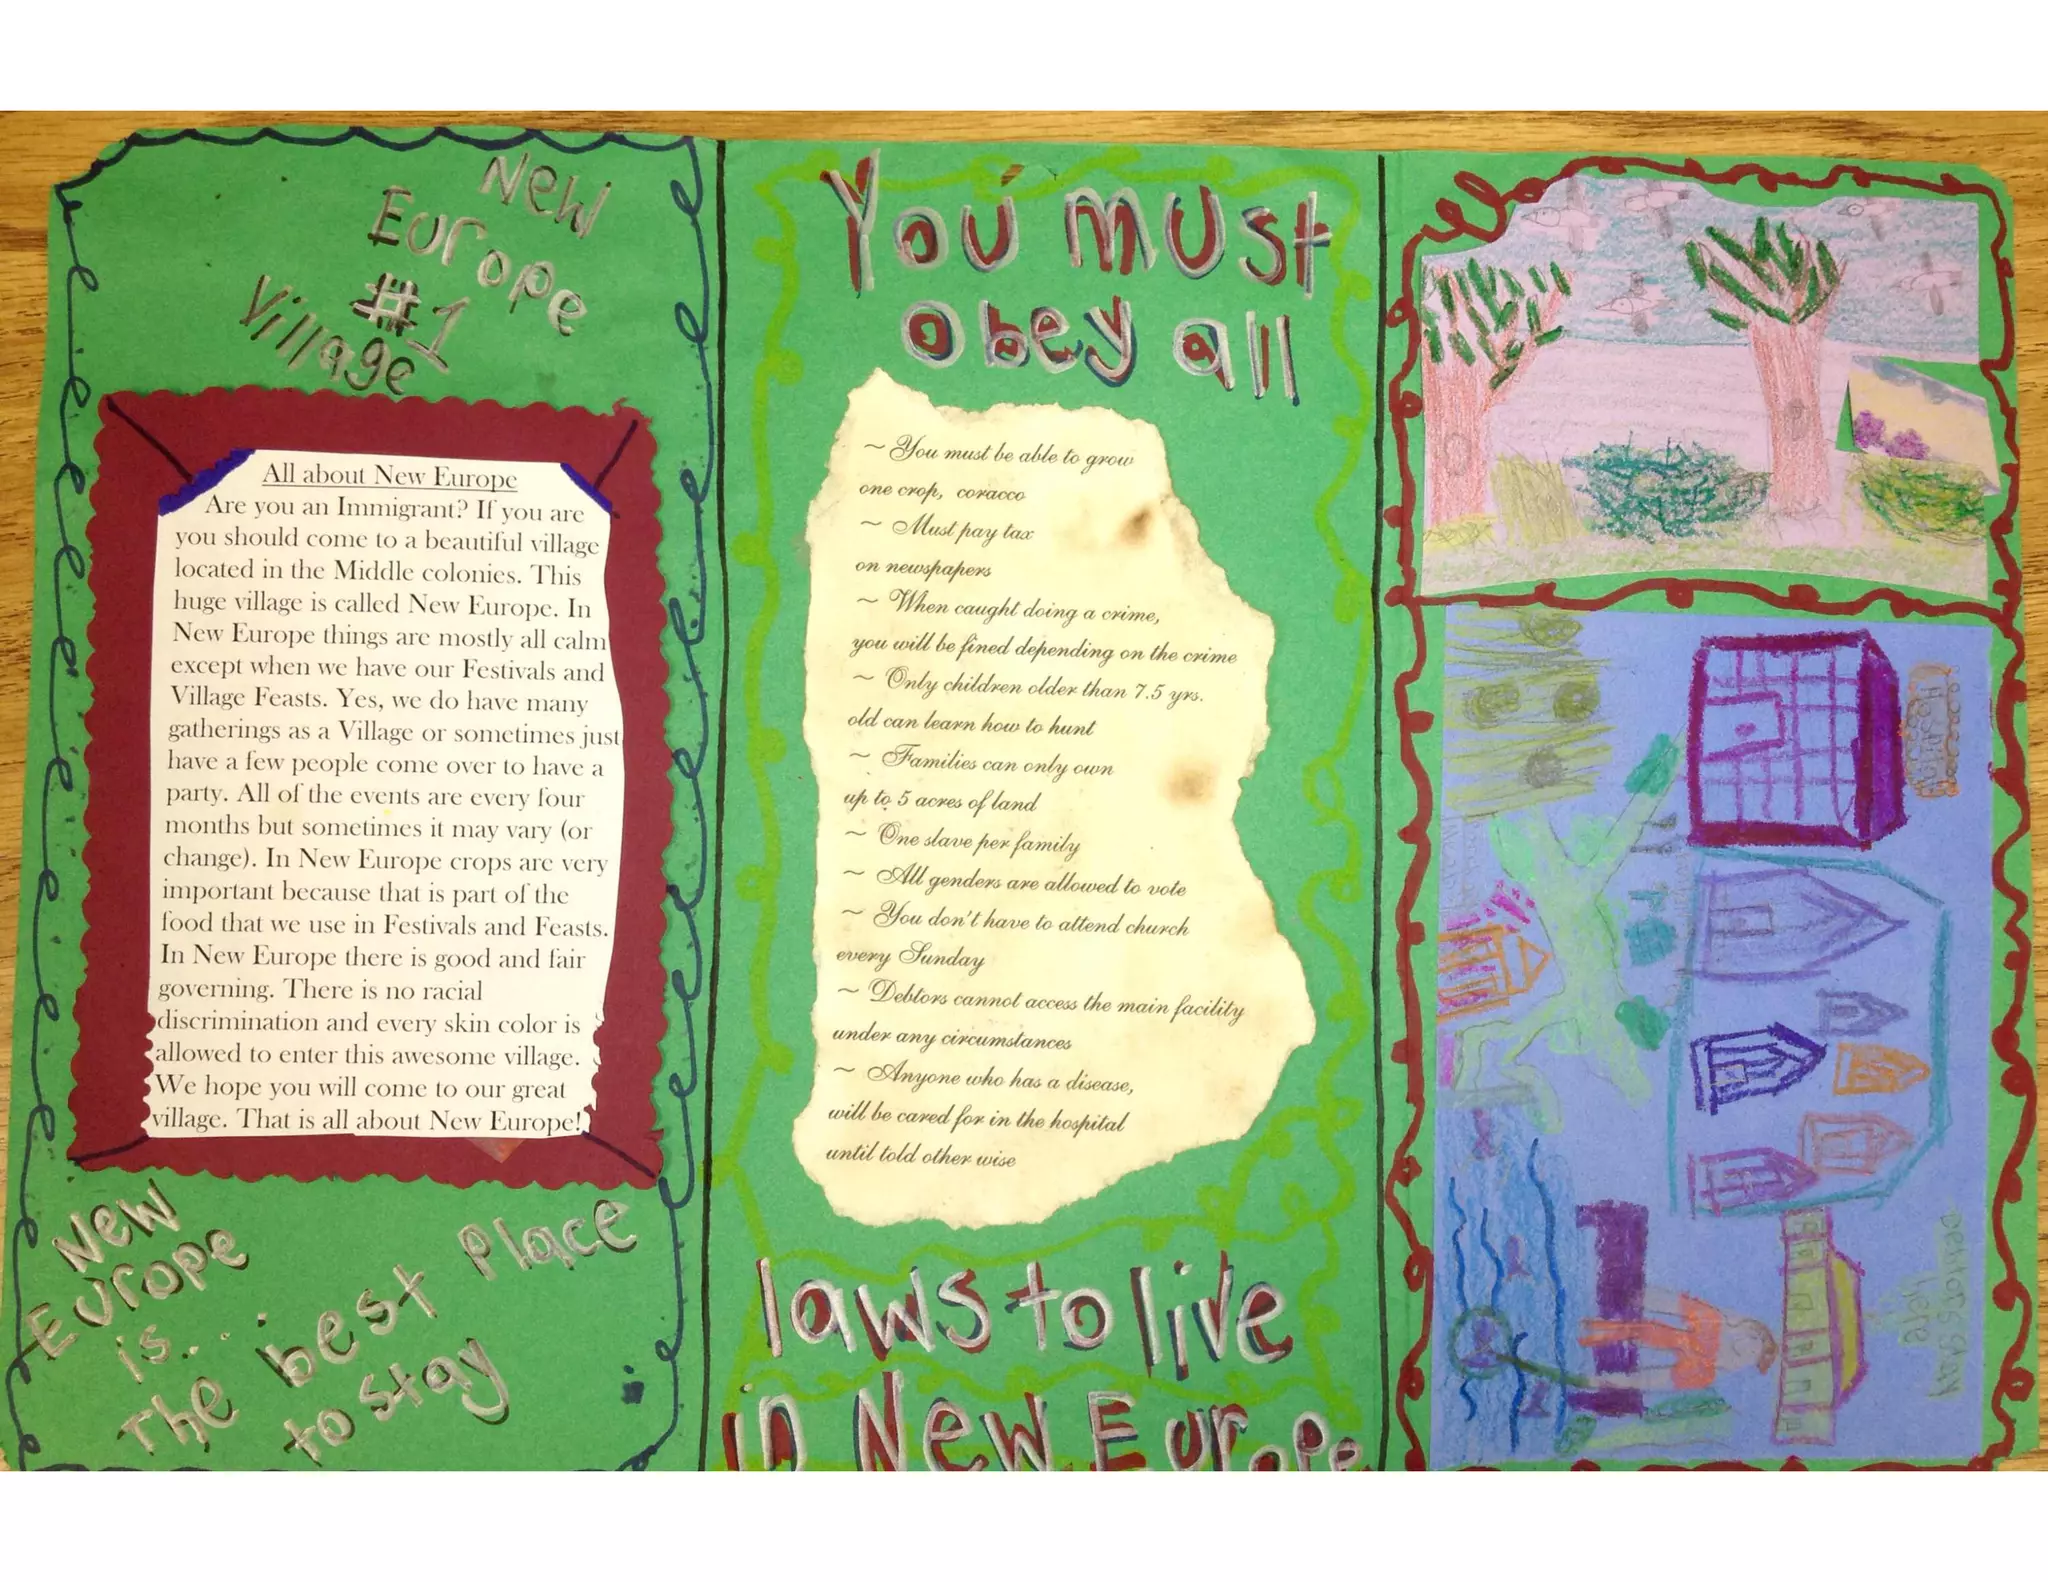 New
Europe
#1
Village
All about New Europe
Are you an Immigrant? If you are
you should come to a beautiful village
located in the Middle colonies. This
huge village is called New Europe. In
New Europe things are mostly all calm
except when we have our Festivals and
Village Feasts. Yes, we do have many
gatherings as a Village or sometimes just
have a few people come over to have a
party. All of the events are every four
months but sometimes it may vary (or
change). In New Europe crops are very
important because that is part of the
food that we use in Festivals and Feasts.
In New Europe there is good and fair
governing. There is no racial
discrimination and every skin color is
allowed to enter this awesome village.
We hope you will come to our great
village. That is all about New Europe!
New
Europe
is...
The best Place
to stay
You must
obey all
~ You must be able to grow
one crop, coracco
~ Must pay tax
on newspapers
~ When caught doing a crime,
you will be fined depending on the crime
~ Only children older than 7.5 yrs.
old can learn how to hunt
~ Families can only own
up to 5 acres of land
~ One slave per family
~ All genders are allowed to vote
~ You don't have to attend church
every Sunday
~ Debtors cannot access the main facility
under any circumstances
~ Anyone who has a disease,
will be cared for in the hospital
until told other wise
laws to live
in New Europe
Hospital
Debtors stay
here